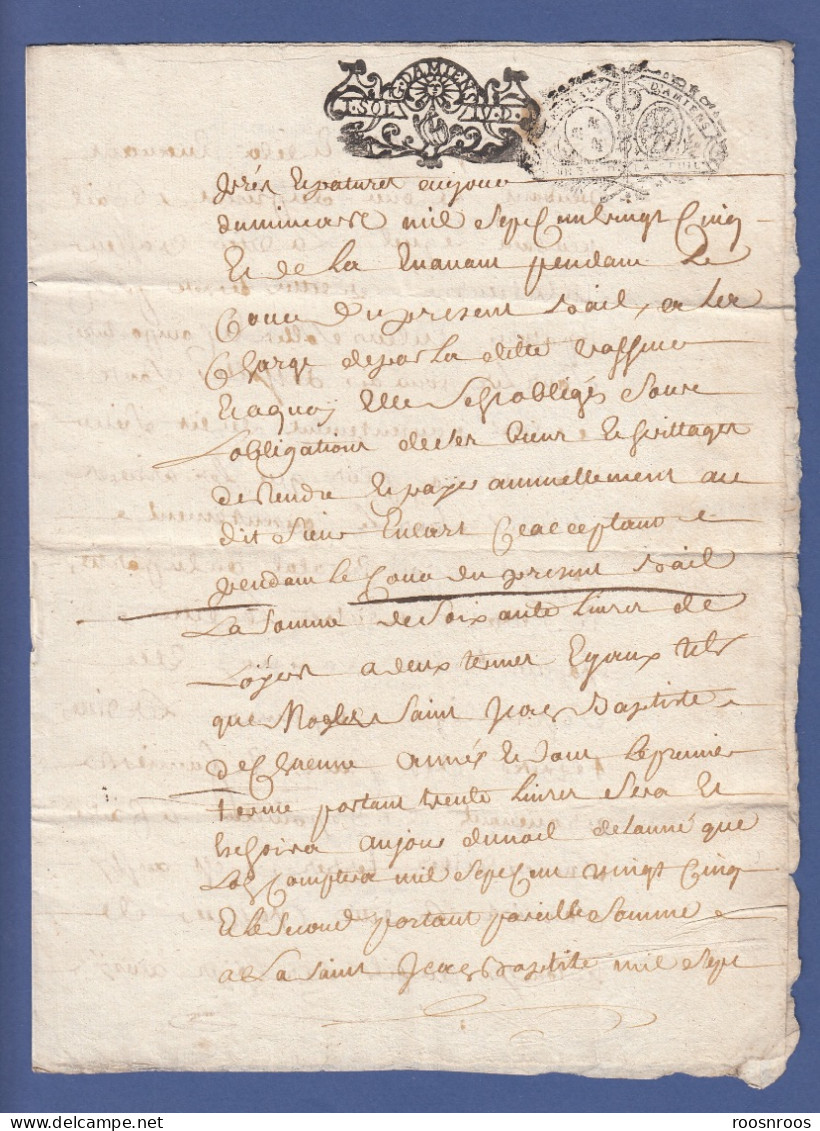 G. DAMIENS
I. SOL IV. D.
D'AMIENS
prés et patures au jour
du mil sept cent vingt Cinq
Et de la En avant pendant Le
Cour du present bail, a les
Charge de par La ditte
Et a quoy Elle Sest obligés soure
L'obligations de ses Biens Et heritages
de rendre Et payer annuellement au
dit Sieur Ce acceptant
pendant le Cour du present bail
La somme de soixante Livres de
Loyers a deux termes Egaux tels
que Noel et saint Jean Baptiste
de Chacune année Et dont Le premier
terme portant trente Livres sera Et
Echoira au jour de noel de Lanné que
Lon Comptera mil sept Cent vingt Cinq
Et le second portant pareille somme
a La saint Jean Baptiste mil sept
roosnroos